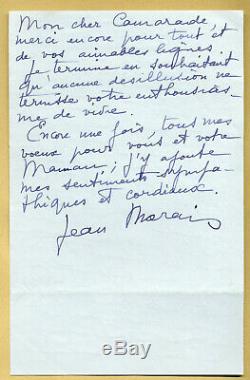 Mon cher Camarade,
merci encore pour tout et
de vos aimables lignes.
Je termine en souhaitant
qu'aucune desillusion ne
ternisse votre enthousias-
me de vivre.
Encore une fois, tous mes
voeux pour vous et votre
Maman; j'y ajoute
mes sentiments sympa-
thiques et cordiaux.
Jean Marais